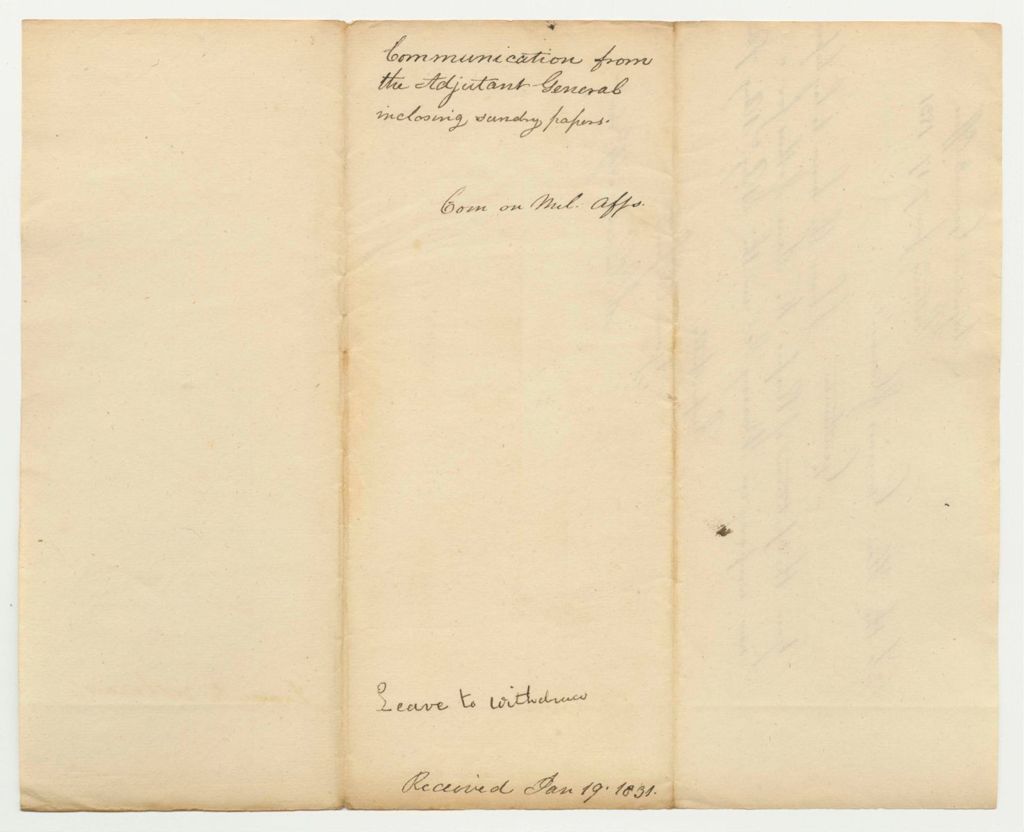 Communication from
the Adjutant General
inclosing sundry papers.
Com on Mil. Affs.
Leave to withdraw
Received Jan 19. 1831.